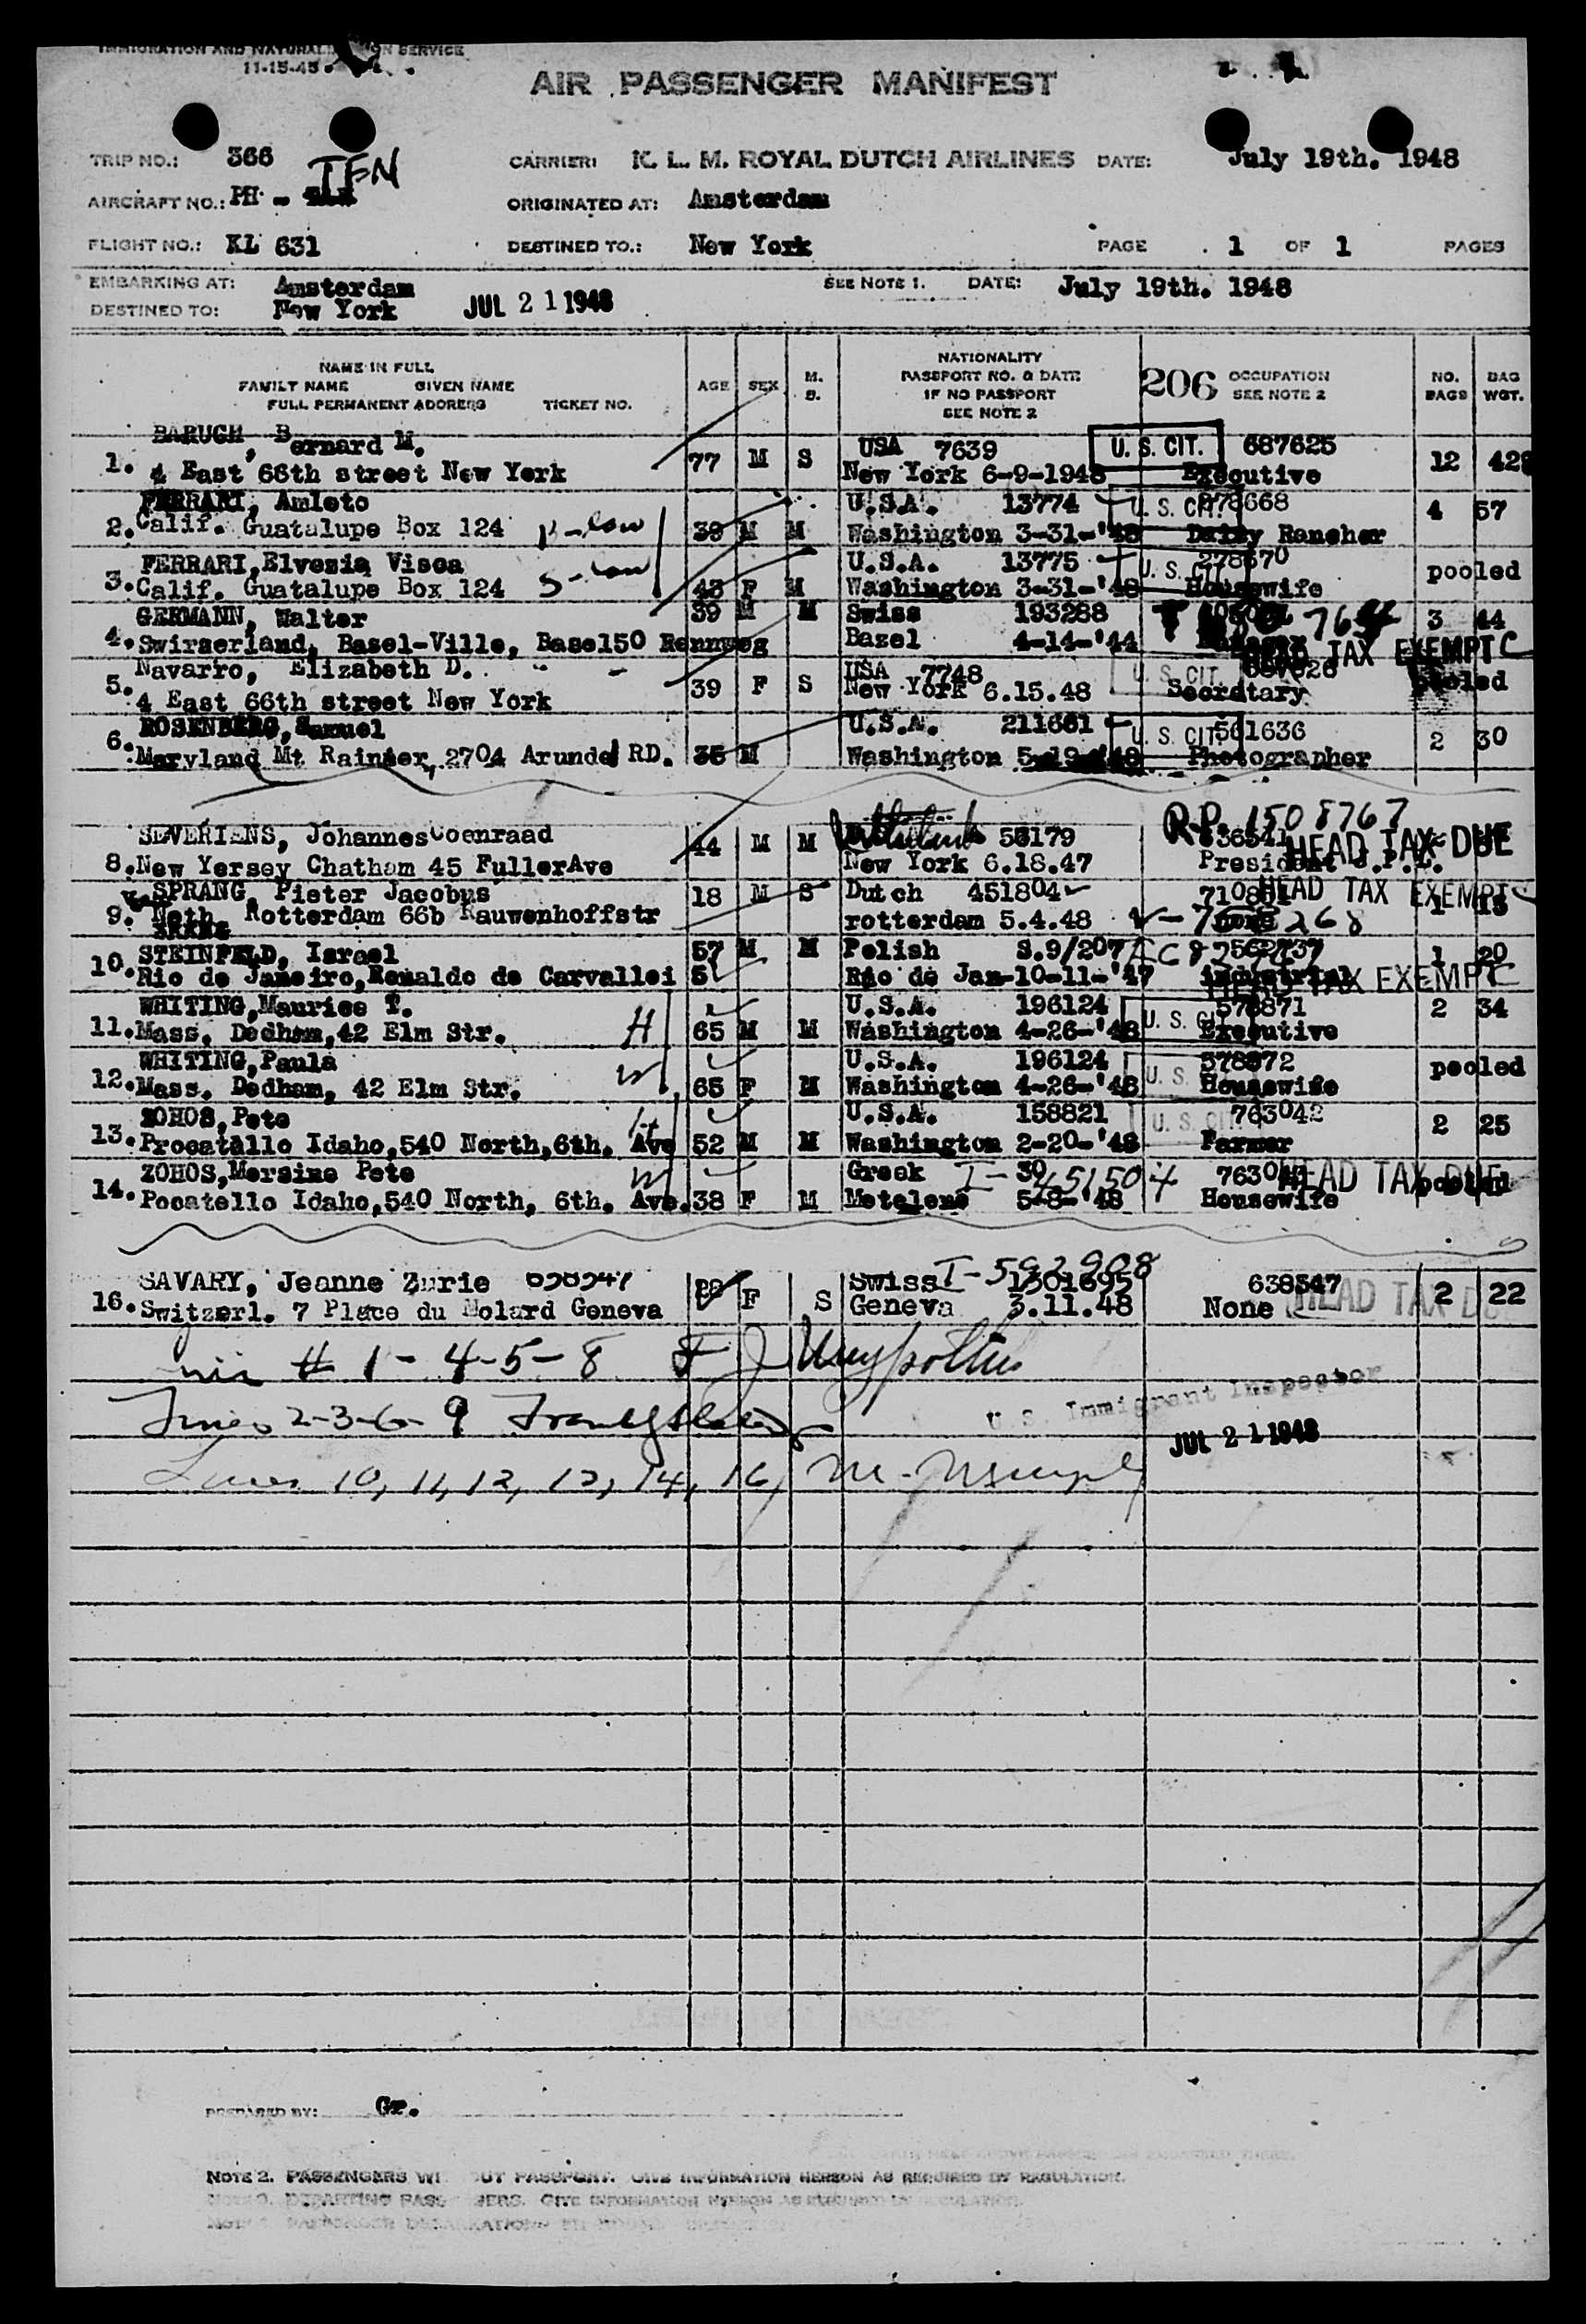 IMMIGRATION AND NATURALIZATION SERVICE
11-15-45
AIR PASSENGER MANIFEST
TRIP NO.: 366 CARRIER: K. L. M. ROYAL DUTCH AIRLINES DATE: July 19th. 1948
TFN
AIRCRAFT NO.: PH - ORIGINATED AT: Amsterdam
FLIGHT NO.: KL 631 DESTINED TO.: New York PAGE 1 OF 1 PAGES
EMBARKING AT: Amsterdam SEE NOTE 1. DATE: July 19th. 1948
DESTINED TO: New York JUL 21 1948
NAME IN FULL
FAMILY NAME GIVEN NAME
FULL PERMANENT ADDRERS TICKET NO.
AGE SEX M. S.
NATIONALITY
PASSPORT NO. & DATE
IF NO PASSPORT
SEE NOTE 2
206 OCCUPATION
SEE NOTE 2
NO. BAGS BAG WGT.
BARUCH, Bernard M. USA 7639 U. S. CIT. 687625
1. 4 East 66th street New York 77 M S New York 6-9-1948 Executive 12 429
FERRARI, Amleto U.S.A. 13774 U. S. CIT. 278668
2. Calif. Guatalupe Box 124 39 M M Washington 3-31-'48 Dairy Rancher 4 57
FERRARI, Elvezia Visca U.S.A. 13775 U. S. 278670
3. Calif. Guatalupe Box 124 43 F M Washington 3-31-'48 Housewife pooled
GERMANN, Walter 39 M M Swiss 193288 3 44
4. Swirzerland, Basel-Ville, Basel50 Rennweg Bazel 4-14-'44 HEAD TAX EXEMPT C
Navarro, Elizabeth D. USA 7748 U. S. CIT. 687626
5. 4 East 66th street New York 39 F S New York 6.15.48 Secretary pooled
ROSENBERG, Samuel U.S.A. 211661 U. S. CIT. 561636
6. Maryland Mt Rainier, 2704 Arundel RD. 35 M Washington 5-19-'48 Photographer 2 30
R.P. 1508767
SEVERIENS, Johannes Coenraad Netherlands 56179 636541 HEAD TAX DUE
8. New Yersey Chatham 45 FullerAve 44 M M New York 6.18.47 President
SPRANG, Pieter Jacobus 18 M S Dutch 451804 HEAD TAX EXEMPT
9. Neth. Rotterdam 66b Rauwenhoffstr rotterdam 5.4.48 1 15
STEINFELD, Israel 57 M M Polish S.9/207 562737 1 20
10. Rio de Janeiro, Renaldo de Carvallei 51 Rio de Jan-10-11-'47 industrial HEAD TAX EXEMPT C
WHITING, Maurice T. U.S.A. 196124 U. S. CIT 578871 2 34
11. Mass. Dedham, 42 Elm Str. H 65 M M Washington 4-26-'48 Executive
WHITING, Paula U.S.A. 196124 U. S. 578872 pooled
12. Mass. Dedham, 42 Elm Str. W 65 F M Washington 4-26-'48 Housewife
ZOHOS, Pete U.S.A. 158821 U. S. CIT 763042
13. Procatallo Idaho, 540 North, 6th. Ave H 52 M M Washington 2-20-'48 Farmer 2 25
ZOHOS, Mersine Pete W Greek I-451504 HEAD TAX DUE pooled
14. Pocatello Idaho, 540 North, 6th. Ave. 38 F M Metelene 5-8-'48 Housewife
SAVARY, Jeanne Zurie Swiss 1301695 I-592908 638547
16. Switzerl. 7 Place du Molard Geneva F S Geneva 3.11.48 None HEAD TAX DUE 2 22
# 1-4-5-8
Lines 2-3-6-9
U. S. Immigrant Inspector
JUL 21 1948
Lines 10, 11, 12, 13, 14, 16,
PREPARED BY: Gr.
NOTE 2. PASSENGERS WITHOUT PASSPORT. GIVE INFORMATION HEREON AS REQUIRED BY REGULATION.